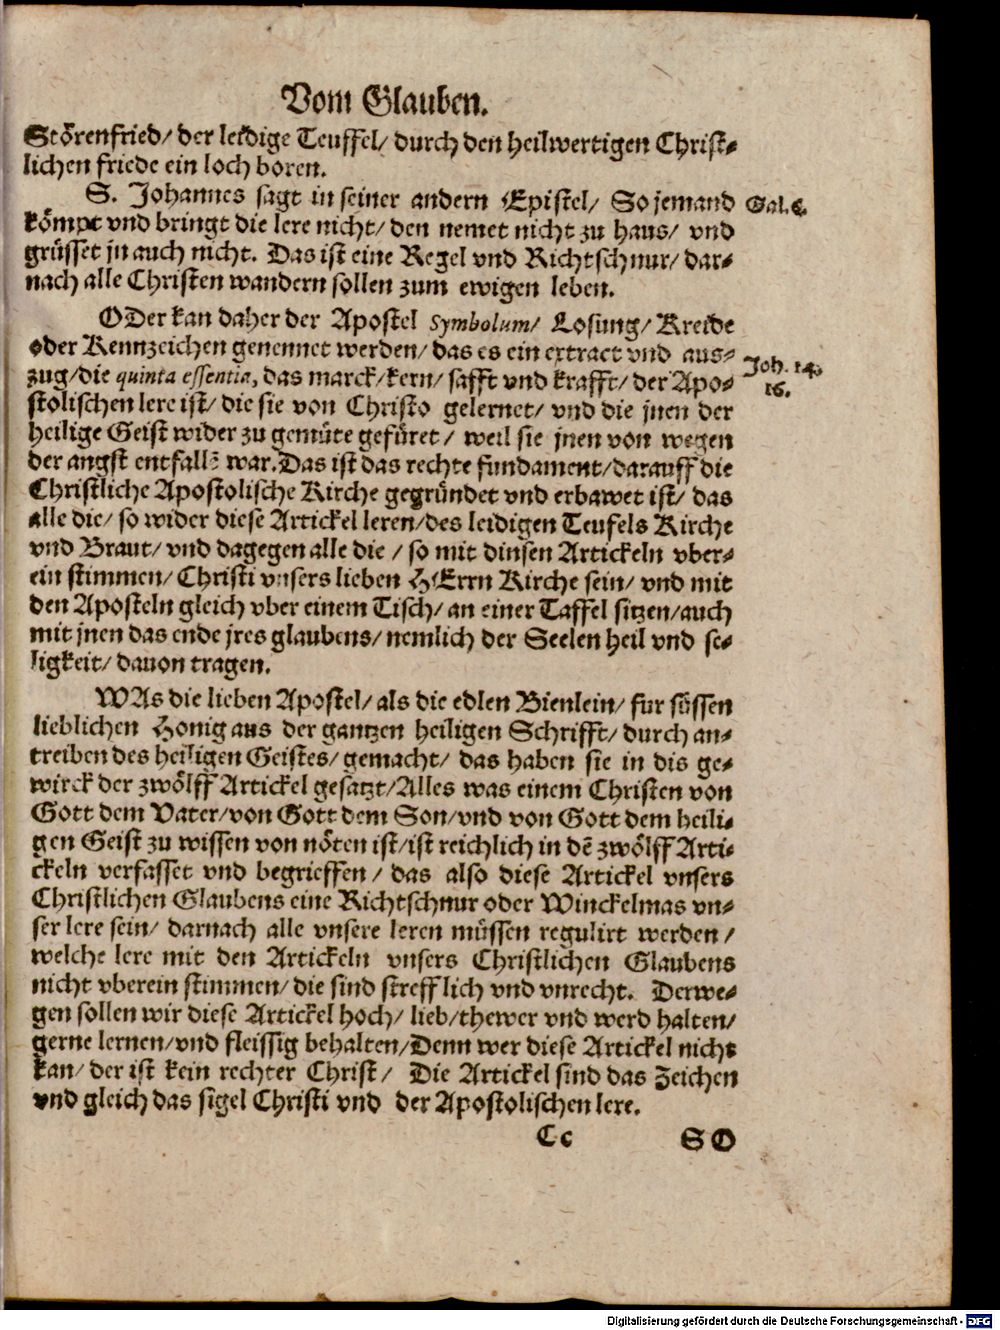 Vom Glauben.
Störenfried/ der leidige Teuffel/ durch den heilwertigen Christ-
lichen friede ein loch boren.
S. Johannes sagt in seiner andern Epistel/ So jemand
kömpt vnd bringt die lere nicht/ den nemet nicht zu haus/ vnd
grüsset jn auch nicht. Das ist eine Regel vnd Richtschnur/ dar-
nach alle Christen wandern sollen zum ewigen leben.
Gal. 6.
ODer kan daher der Apostel Symbolum/ Losung/ Kreide
oder Kennzeichen genennet werden/ das es ein extract vnd aus-
zug/ die quinta essentia, das marck/ kern/ safft vnd krafft/ der Apo-
stolischen lere ist/ die sie von Christo gelernet/ vnd die jnen der
heilige Geist wider zu gemüte gefüret/ weil sie jnen von wegen
der angst entfallē war. Das ist das rechte fundament/ darauff die
Christliche Apostolische Kirche gegründet vnd erbawet ist/ das
alle die/ so wider diese Artickel leren/ des leidigen Teufels Kirche
vnd Braut/ vnd dagegen alle die/ so mit dinsen Artickeln vber-
ein stimmen/ Christi vnsers lieben HErrn Kirche sein/ vnd mit
den Aposteln gleich vber einem Tisch/ an einer Taffel sitzen/ auch
mit jnen das ende jres glaubens/ nemlich der Seelen heil vnd se-
ligkeit/ dauon tragen.
Joh. 14.
16.
WAs die lieben Apostel/ als die edlen Bienlein/ fur süssen
lieblichen Honig aus der gantzen heiligen Schrifft/ durch an-
treiben des heiligen Geistes/ gemacht/ das haben sie in dis ge-
wirck der zwölff Artickel gesatzt/ Alles was einem Christen von
Gott dem Vater/ von Gott dem Son/ vnd von Gott dem heili-
gen Geist zu wissen von nöten ist/ ist reichlich in dē zwölff Arti-
ckeln verfasset vnd begrieffen/ das also diese Artickel vnsers
Christlichen Glaubens eine Richtschnur oder Winckelmas vn-
ser lere sein/ darnach alle vnsere leren müssen regulirt werden/
welche lere mit den Artickeln vnsers Christlichen Glaubens
nicht vberein stimmen/ die sind strefflich vnd vnrecht. Derwe-
gen sollen wir diese Artickel hoch/ lieb/ thewer vnd werd halten/
gerne lernen/ vnd fleissig behalten/ Denn wer diese Artickel nicht
kan/ der ist kein rechter Christ/ Die Artickel sind das Zeichen
vnd gleich das sigel Christi vnd der Apostolischen lere.
Cc SO
Digitalisierung gefördert durch die Deutsche Forschungsgemeinschaft - DFG